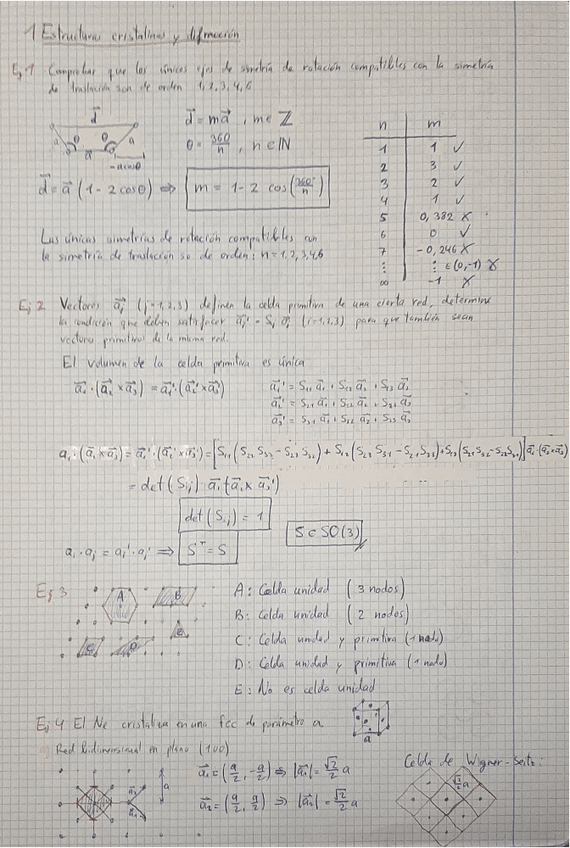 1 Estructuras cristalinas y difracción
Ej 1 Comprobar que los únicos ejes de simetría de rotación compatibles con la simetría
de traslación son de orden 1,2,3,4,6
d⃗
a θ θ a
a⃗
-a cosθ
d⃗ = m a⃗ , m ∈ ℤ
θ = 360/n , n ∈ ℕ
d⃗ = a⃗ (1 - 2 cosθ) ⇒ m = 1 - 2 cos(360°/n)
n m
1 1 ✓
2 3 ✓
3 2 ✓
4 1 ✓
5 0,382 X
6 0 ✓
7 -0,246 X
⋮ ⋮ ∈ (0,-1) X
∞ -1 X
Las únicas simetrías de rotación compatibles con
la simetría de traslación so de orden: n = 1,2,3,4,6
Ej 2 Vectores a⃗j (j=1,2,3) definen la celda primitiva de una cierta red, determine
la condición que deben satisfacer a⃗i' = Sij a⃗j (i=1,2,3) para que también sean
vectores primitivos de la misma red.
El volumen de la celda primitiva es única
a⃗1·(a⃗2 × a⃗3) = a⃗1'·(a⃗2' × a⃗3')
= det(Sij)
det(Sij) = 1
S ∈ SO(3)
ai·aj = ai'·aj' ⇒ S^T = S
Ej 3
A B C D E
A: Celda unidad (3 nodos)
B: Celda unidad (2 nodos)
C: Celda unidad y primitiva (1 nodo)
D: Celda unidad y primitiva (1 nodo)
E: No es celda unidad
Ej 4 El Ne cristaliza en una fcc de parámetro a
a
Red bidimensional en plano (100)
a⃗1 = (a/2, -a/2) ⇒ |a⃗1| = √2/2 a
a⃗2 = (a/2, a/2) ⇒ |a⃗2| = √2/2 a
Celda de Wigner-Seitz:
√2/2 a